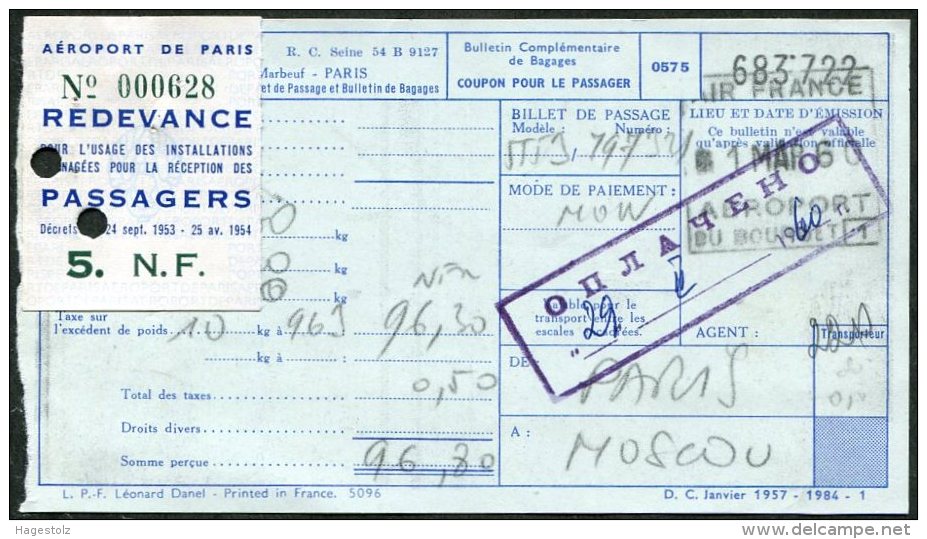 AÉROPORT DE PARIS
Nº 000628
REDEVANCE
POUR L'USAGE DES INSTALLATIONS
NAGÉES POUR LA RÉCEPTION DES
PASSAGERS
Décrets 24 sept. 1953 - 25 av. 1954
5. N.F.
R. C. Seine 54 B 9127
Marbeuf - PARIS
et de Passage et Bulletin de Bagages
Bulletin Complémentaire
de Bagages
COUPON POUR LE PASSAGER
0575
683.722
AIR FRANCE
BILLET DE PASSAGE
Modèle : Numéro :
LIEU ET DATE D'ÉMISSION
Ce bulletin n'est valable
qu'après validation officielle
1 MAR 60
AÉROPORT
DU BOURGET 1
MODE DE PAIEMENT :
ОПЛАЧЕНО
29 60
kg
kg
kg
Taxe sur
l'excédent de poids 10 kg à 963 96,30
kg à :
Total des taxes 0,50
Droits divers
Somme perçue 96,80
Valable pour le
transport entre les
escales
AGENT :
Transporteur
DE : PARIS
A : MOSCOU
L. P.-F. Léonard Danel - Printed in France. 5096
D. C. Janvier 1957 - 1984 - 1
Hagestolz
delcampe.net